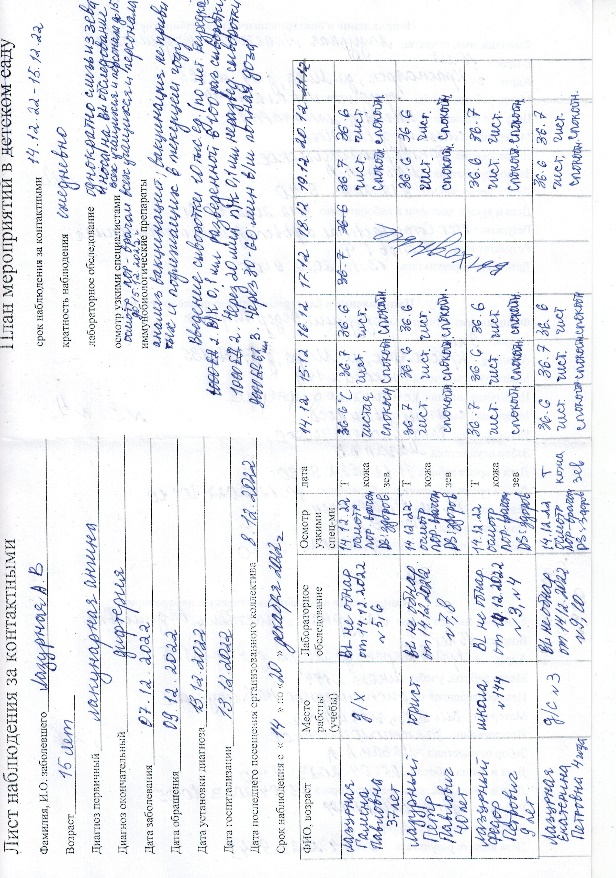 Лист наблюдения за контактными
Фамилия, И.О. заболевшего Лазурная А.В.
Возраст 15 лет
Диагноз первичный лакунарная ангина
Диагноз окончательный дифтерия
Дата заболевания 07.12.2022
Дата обращения 09.12.2022
Дата установки диагноза 13.12.2022
Дата госпитализации 13.12.2022
Дата последнего посещения организованного коллектива 8.12.2022
Срок наблюдения с « 14 » по «20» декабря 2022
План мероприятий в детском саду
срок наблюдения за контактными 14.12.22 - 15.12.22
кратность наблюдения ежедневно
лабораторное обследование однократно слизь из зева
и носа на BL обследование
всех учащихся и персонала до 15
осмотр узкими специалистами
осмотр лор-врачом всех учащихся и персонала
иммунобиологические препараты
анализ вакцинации; вакцинация не привитых
и подлежащих в текущем году
Введение сыворотки 40 тыс ед (по инст. введение
1. п/к 0,1 мл разведенной 1:100 р-р сыворотки
2. Через 20 мин п/к 0,1 мл неразвед. сыворотки
3. Через 30-60 мин в/м полная доза
ФИО, возраст
Место работы (учебы)
Лабораторное обследование
Осмотр узкими спец-ми
дата 14.12 15.12 16.12 17.12 18.12 19.12 20.12
Лазурная Галина Павловна 37 лет
д/х
BL не обнар от 14.12.2022 №5,6
14.12.22 осмотр лор-врача DS: здоров
Т 36.6°C 36.7 36.6 36.7 36.6 36.7 36.6
кожа чистая чист. чист. чист. чист.
зев спокоен спокоен спокойн. спокоен спокойн.
Лазурный Петр Павлович 40 лет
юрист
BL не обнар от 14.12.2022 №7,8
14.12.22 осмотр лор-врача DS: здоров
Т 36.7 36.6 36.6 36.6 36.6
кожа чист. чист. чист. чист. чист.
зев спокойн спокоен спокойн спокоен спокойн.
Лазурный Федор Петрович 9 лет
школа №144
BL не обнар от 14.12.2022 №3, №4
14.12.22 осмотр лор-врача DS: здоров
Т 36.7 36.6 36.6 36.8 36.7
кожа чист. чист. чист. чист. чист.
зев спокойн спокоен спокойн спокоен спокойн.
Лазурная Екатерина Петровна 4 года
д/с №3
BL не обнар от 14.12.2022 №9,10
14.12.22 осмотр лор-врача DS: здоров
Т 36.6 36.7 36.8 36.6 36.7
кожа чист. чист. чист. чист. чист.
зев спокойн спокоен спокойн спокоен спокойн.